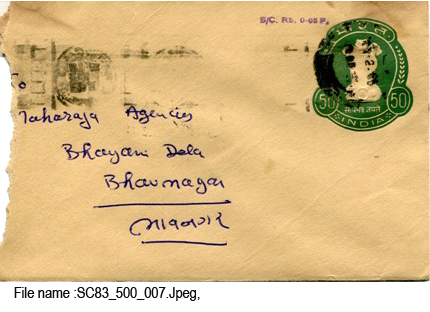 S/C. RS. 0-05 P.
50 50
सत्यमेव जयते
INDIA
To
Maharaja Agencies
Bhayani Dela
Bhavnagar
ભાવનગર
File name :SC83_500_007.Jpeg,